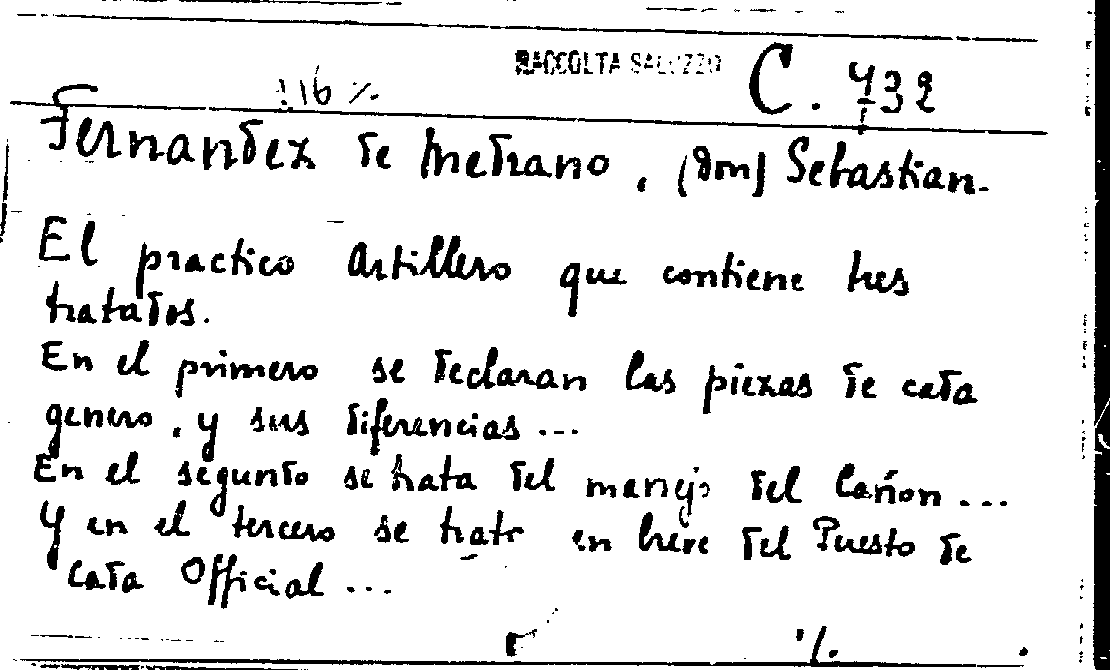 RACCOLTA SALUZZO C. 732
116 %
Fernandez de Medrano, (don) Sebastian.
El practico Artillero que contiene tres
tratados.
En el primero se declaran las piezas de cada
genero, y sus diferencias...
En el segundo se trata del manejo del Cañon...
Y en el tercero se trata en breve del Puesto de
cada Official...
%.